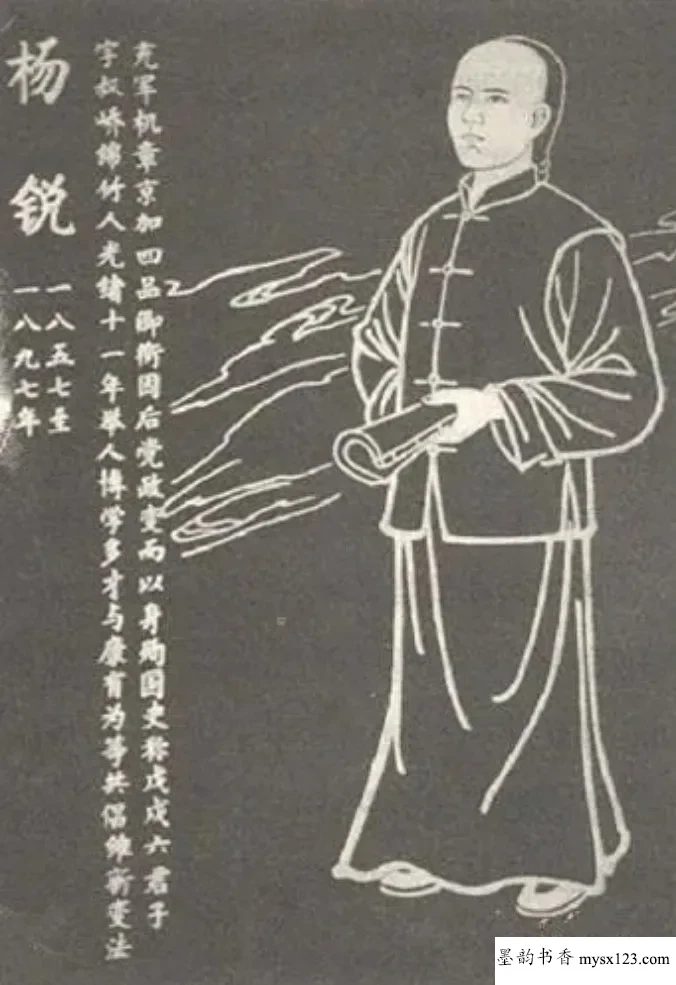 杨锐
一八五七至
一八九七年
字叔峤绵竹人光绪十一年举人博学多才与康有为等共倡维新变法
充军机章京加四品卿衔因后党政变而以身殉国史称戊戌六君子
墨韵书香 mysx123.com